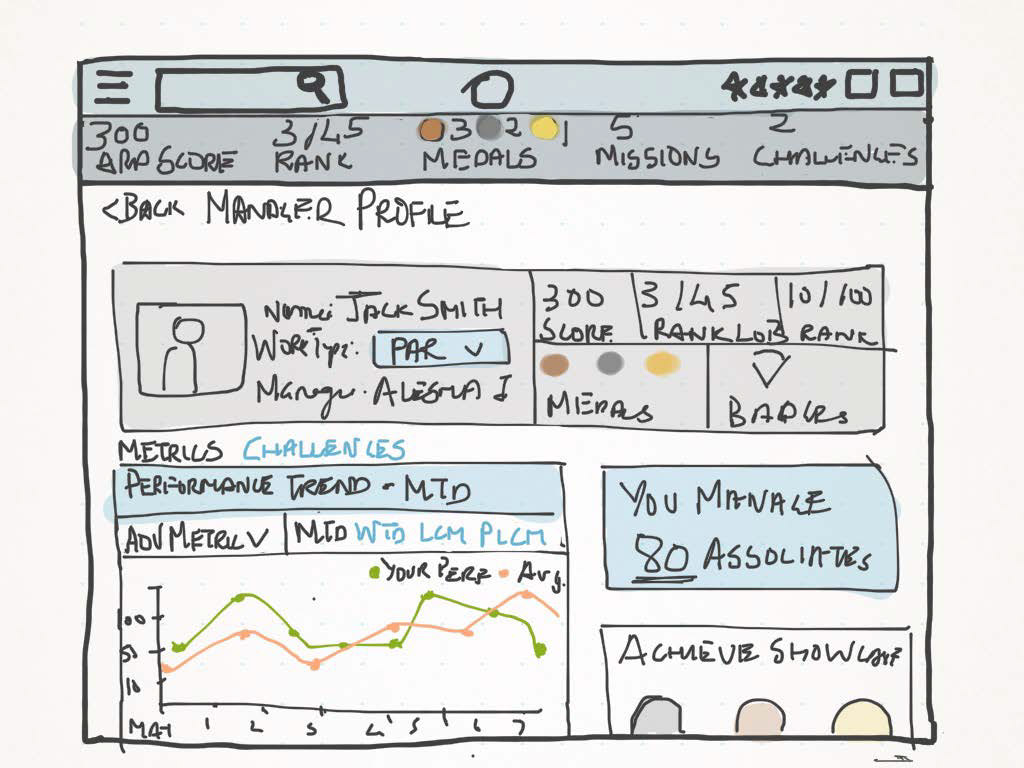 300 3/45 3 2 1 5 2
SCORE RANK MEDALS MISSIONS CHALLENGES
<BACK MANAGER PROFILE
Name: JACK SMITH
WORK TYPE: PAR
300 3/45 10/100
SCORE RANK LOB RANK
MEDALS BADGES
METRICS CHALLENGES
PERFORMANCE TREND - MTD
MTD WTD LCM PLCM
YOUR PERF Avg.
100
50
10
MAY 1 2 3 4 5 6 7
YOU MANAGE
80 ASSOCIATES
ACHIEVE SHOWCASE